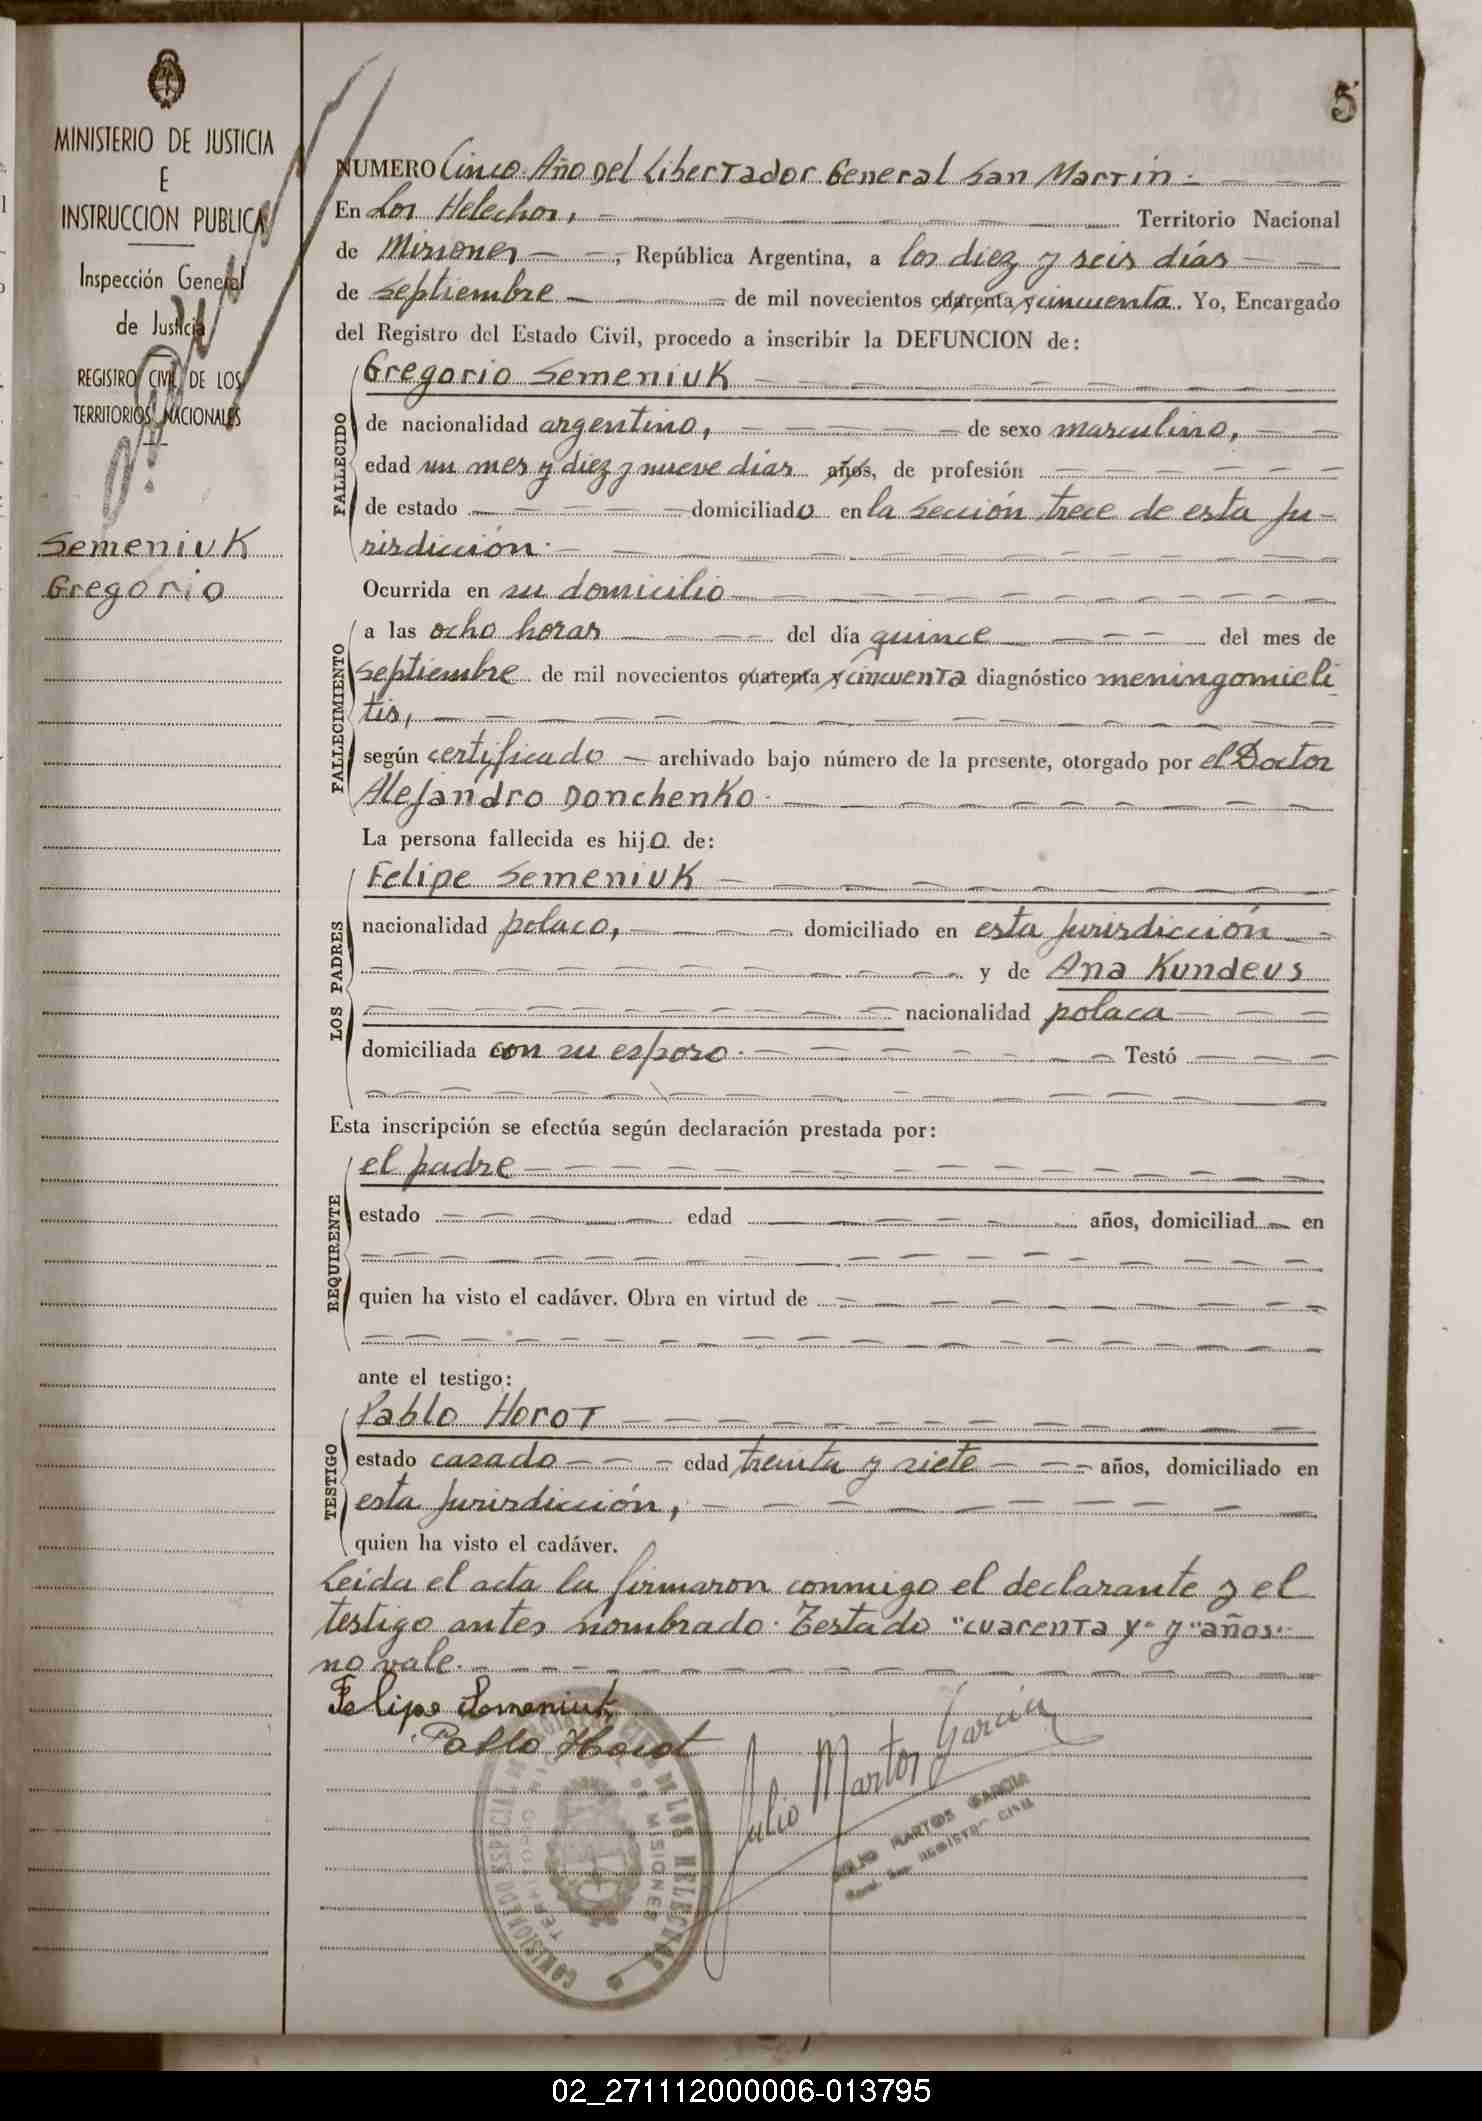 5
MINISTERIO DE JUSTICIA
E
INSTRUCCION PUBLICA
Inspección General
de Justicia
REGISTRO CIVIL DE LOS
TERRITORIOS NACIONALES
Semeniuk
Gregorio
NUMERO Cinco. Año Del Libertador General San Martin.
En Los Helechos, Territorio Nacional
de Misiones, República Argentina, a los diez y seis días
de septiembre de mil novecientos cuarenta y cincuenta. Yo, Encargado
del Registro del Estado Civil, procedo a inscribir la DEFUNCION de:
FALLECIDO
Gregorio Semeniuk
de nacionalidad argentino, de sexo masculino,
edad un mes y diez y nueve días años, de profesión
de estado domiciliado en la Sección trece de esta ju-
risdicción.
Ocurrida en su domicilio
FALLECIMIENTO
a las ocho horas del día quince del mes de
septiembre de mil novecientos cuarenta y cincuenta diagnóstico meningomieli
tis,
según certificado archivado bajo número de la presente, otorgado por el Doctor
Alejandro Donchenko.
La persona fallecida es hijo de:
LOS PADRES
Felipe Semeniuk
nacionalidad polaco, domiciliado en esta jurisdicción
y de Ana Kundeus
nacionalidad polaca
domiciliada con su esposo. Testó
Esta inscripción se efectúa según declaración prestada por:
REQUIRENTE
el padre
estado edad años, domiciliad en
quien ha visto el cadáver. Obra en virtud de
ante el testigo:
TESTIGO
Pablo Horot
estado casado edad treinta y siete años, domiciliado en
esta jurisdicción,
quien ha visto el cadáver.
Leida el acta la firmaron conmigo el declarante y el
testigo antes nombrado. Testado "cuarenta y" y "años"
no vale.
Felipe Semeniuk
Pablo Horot
Julio Martos García
JULIO MARTOS GARCIA
REGISTRO CIVIL
DE LOS HELECHOS
DE MISIONES
02_271112000006-013795